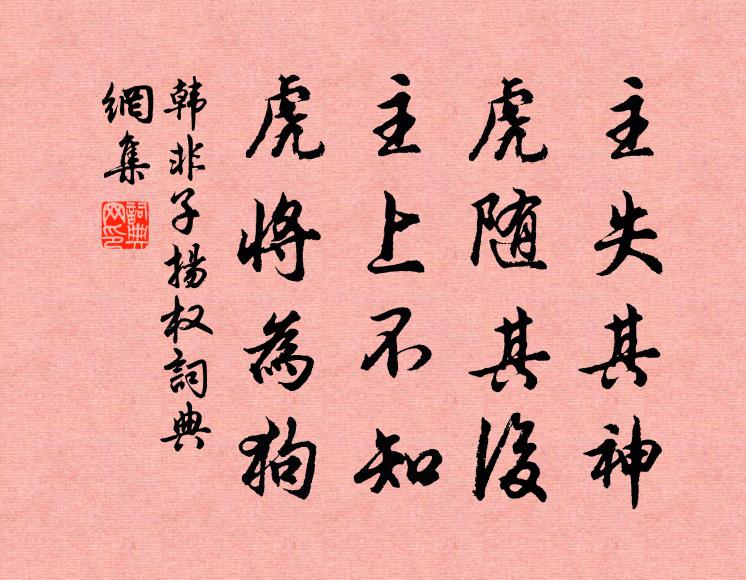 主失其神
虎随其後
主上不知
虎將為狗
韩非子揚权詞典
網集
詞典
网印